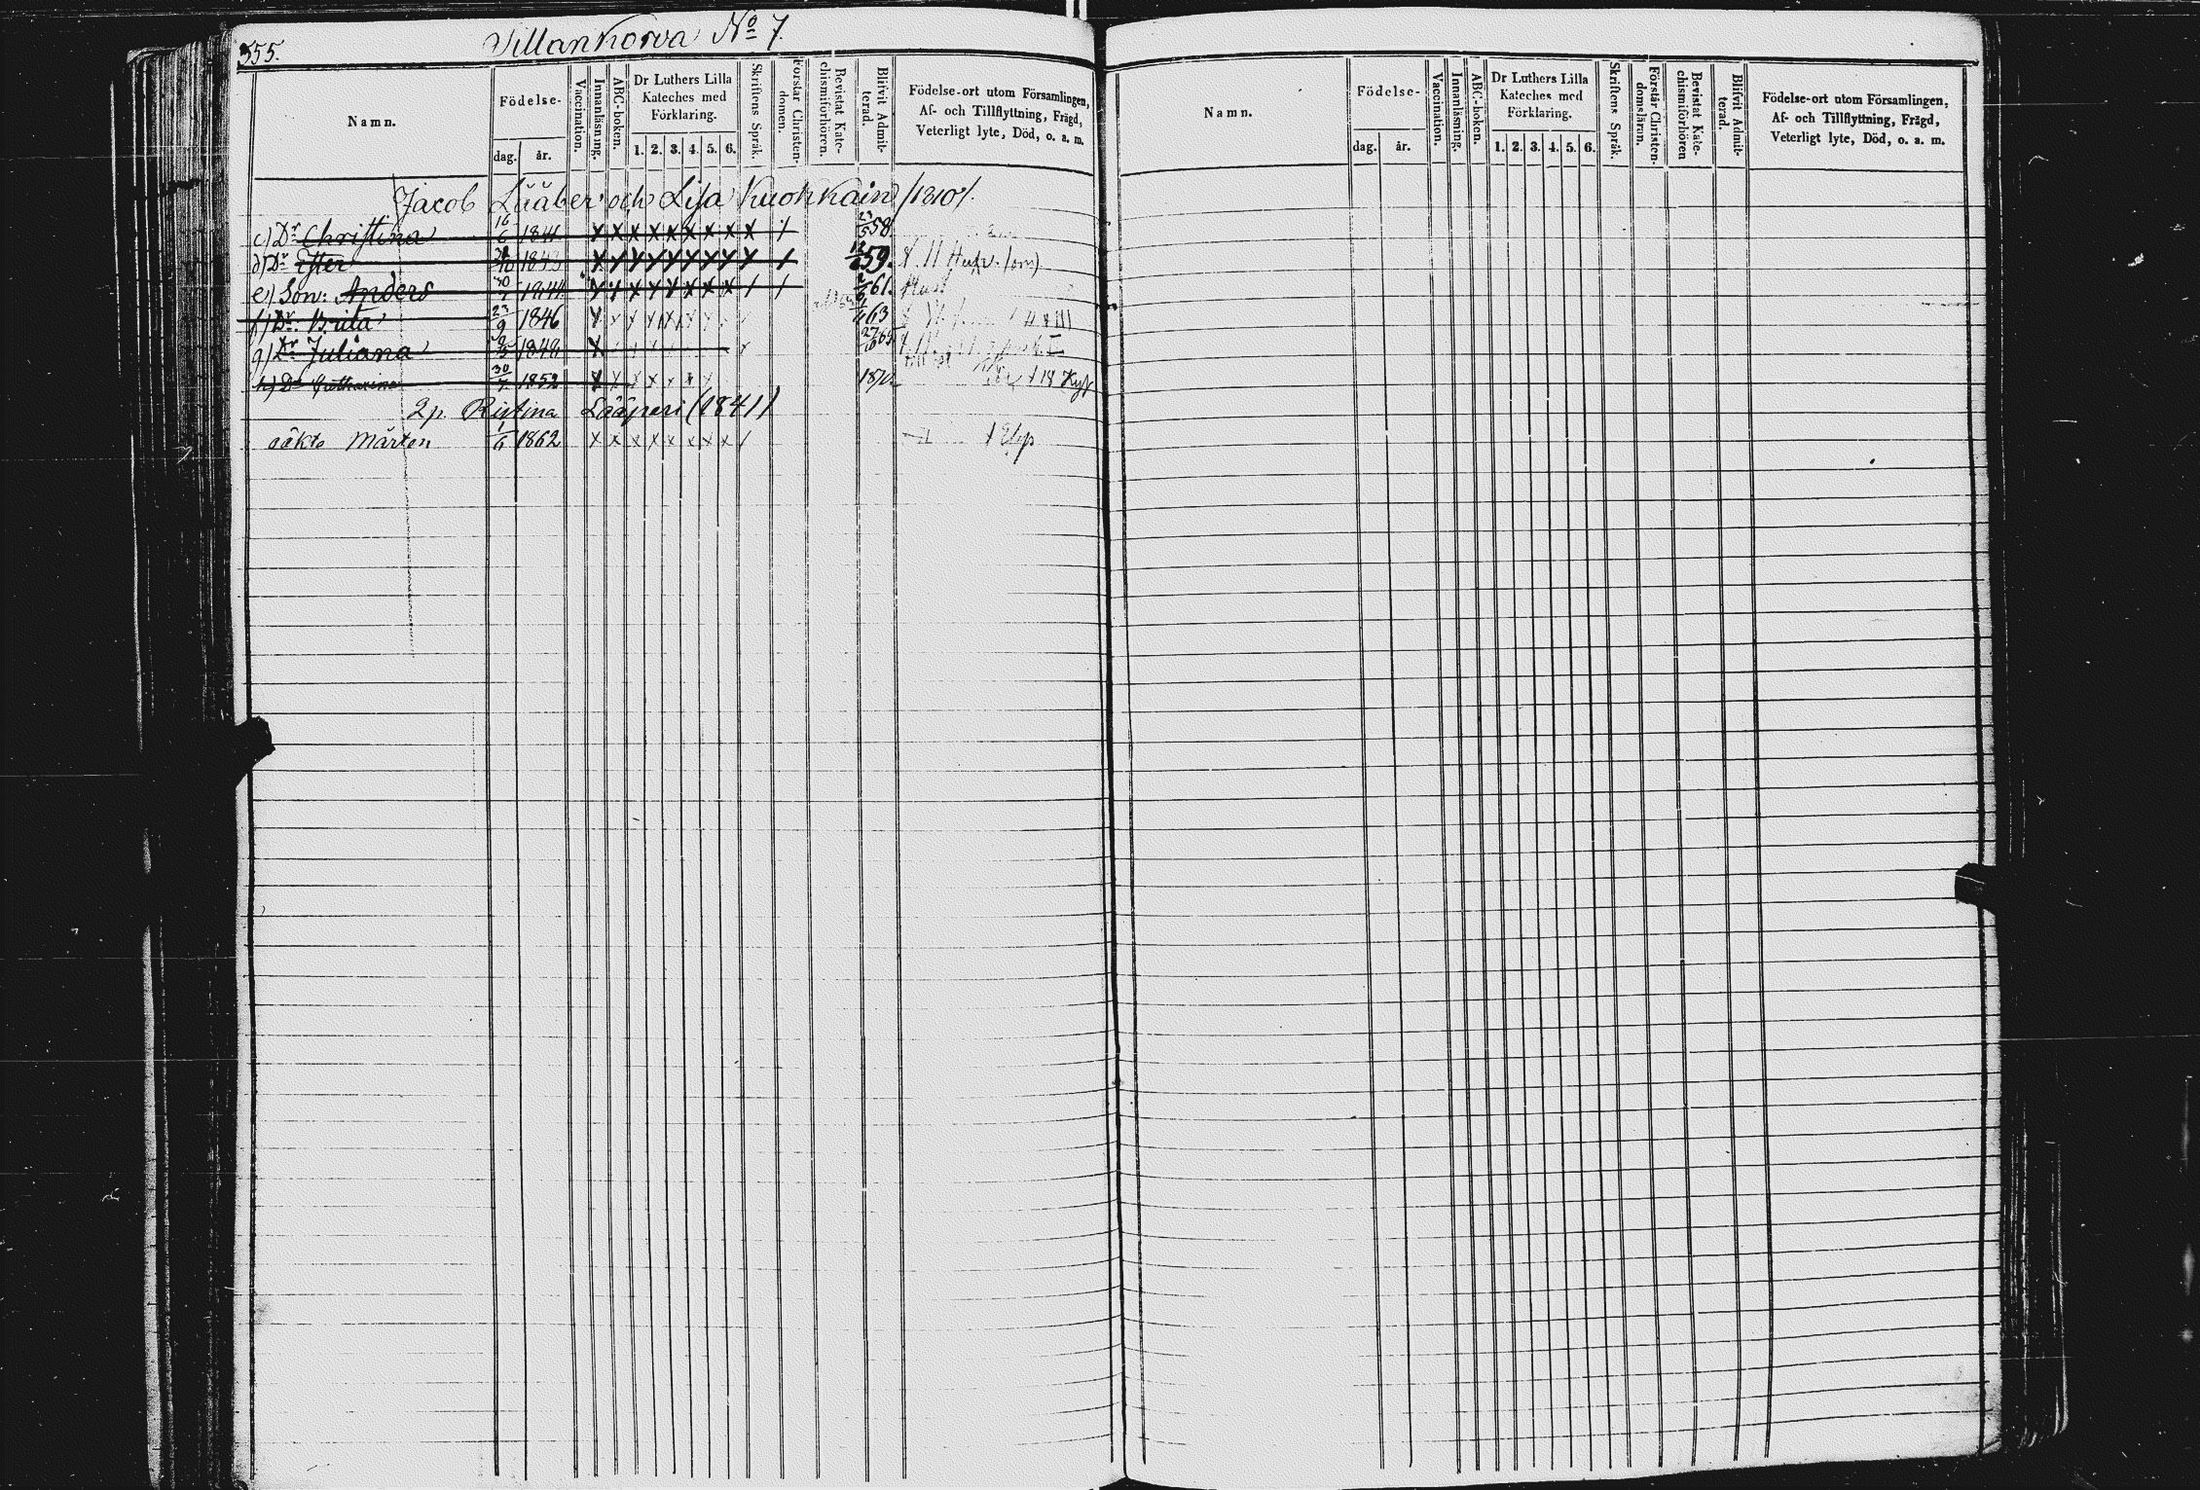 555.
Sillankorva No 7.
Namn.
Födelse-
dag.
år.
Vaccination.
Innanläsning.
ABC-boken.
Dr Luthers Lilla
Kateches med
Förklaring.
1. 2. 3. 4. 5. 6.
Skriftens Språk.
Förstår Christen-
domen.
Bevistat Kate-
chismiförhören.
Blifvit Admit-
terad.
Födelse-ort utom Församlingen,
Af- och Tillflyttning, Frägd,
Veterligt lyte, Död, o. a. m.
Jacob Lääber och Lisa Kuokkain /1810/.
c) Dr Christina 16/6 1841 x x x x x x x x x / 58.
d) Dr Ester 1843 x x x x x x x x x / 12/6 59.
e) Son: Anders 30/7 1844 x x x x x x x x / / 61.
f) Dr. Brita 23/9 1846 x x x x x x x 63
g) Dr Juliana 1849 x
h) Dr Catharina 30/7 1852 x x x x x x 1870.
2p. Ristina Lääperi (1841)
oäkta Mårten 1/6 1862 x x x x x x x x /
Namn.
Födelse-
dag.
år.
Vaccination.
Innanläsning.
ABC-boken.
Dr Luthers Lilla
Kateches med
Förklaring.
1. 2. 3. 4. 5. 6.
Skriftens Språk.
Förstår Christen-
domsläran.
Bevistat Kate-
chismiförhören
Blifvit Admit-
terad.
Födelse-ort utom Församlingen,
Af- och Tillflyttning, Frägd,
Veterligt lyte, Död, o. a. m.